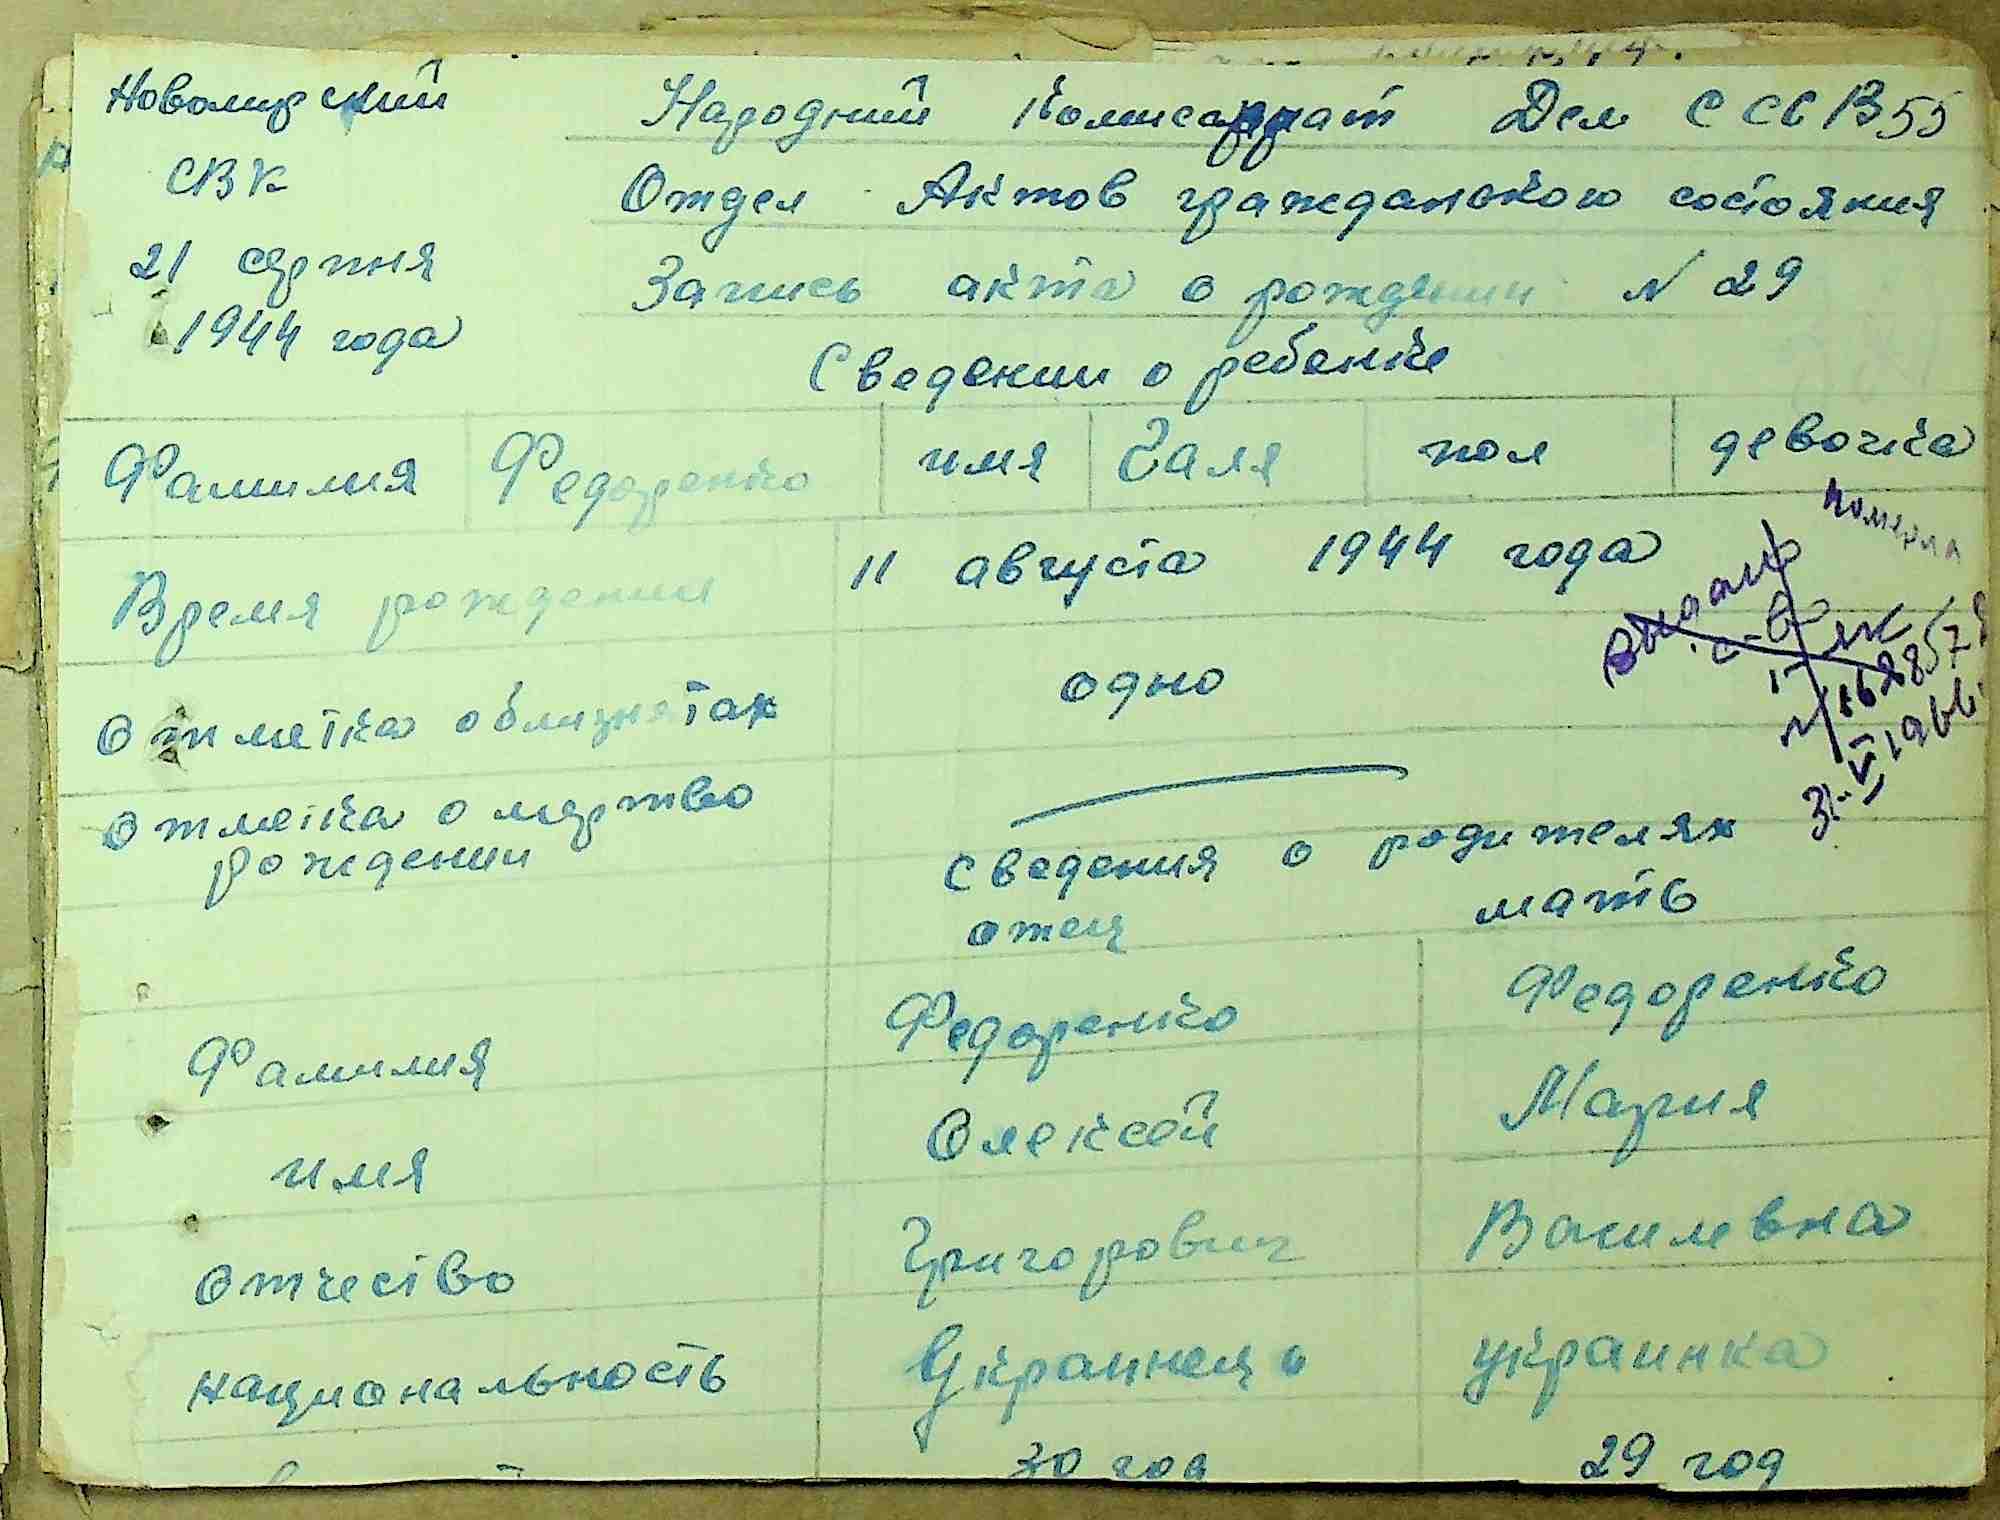 Новомирский
СВК
21 серпня
1944 года
Народний Комисарриат Дел СССР 55
Отдел Актов гражданского состояния
Запись акта о рождении N 29
Сведении о ребенке
Фамилия Федоренко имя Галя пол девочка
померла
Время рождении 11 августа 1944 года
31.VI 1966
Отметка о близнетах одно
Отметка о мертво
рождении
Сведения о родителях
отец мать
Фамилия Федоренко Федоренко
имя Олексей Мария
Отчество Григорович Василевна
национальность Украинец украинка
30 год 29 год